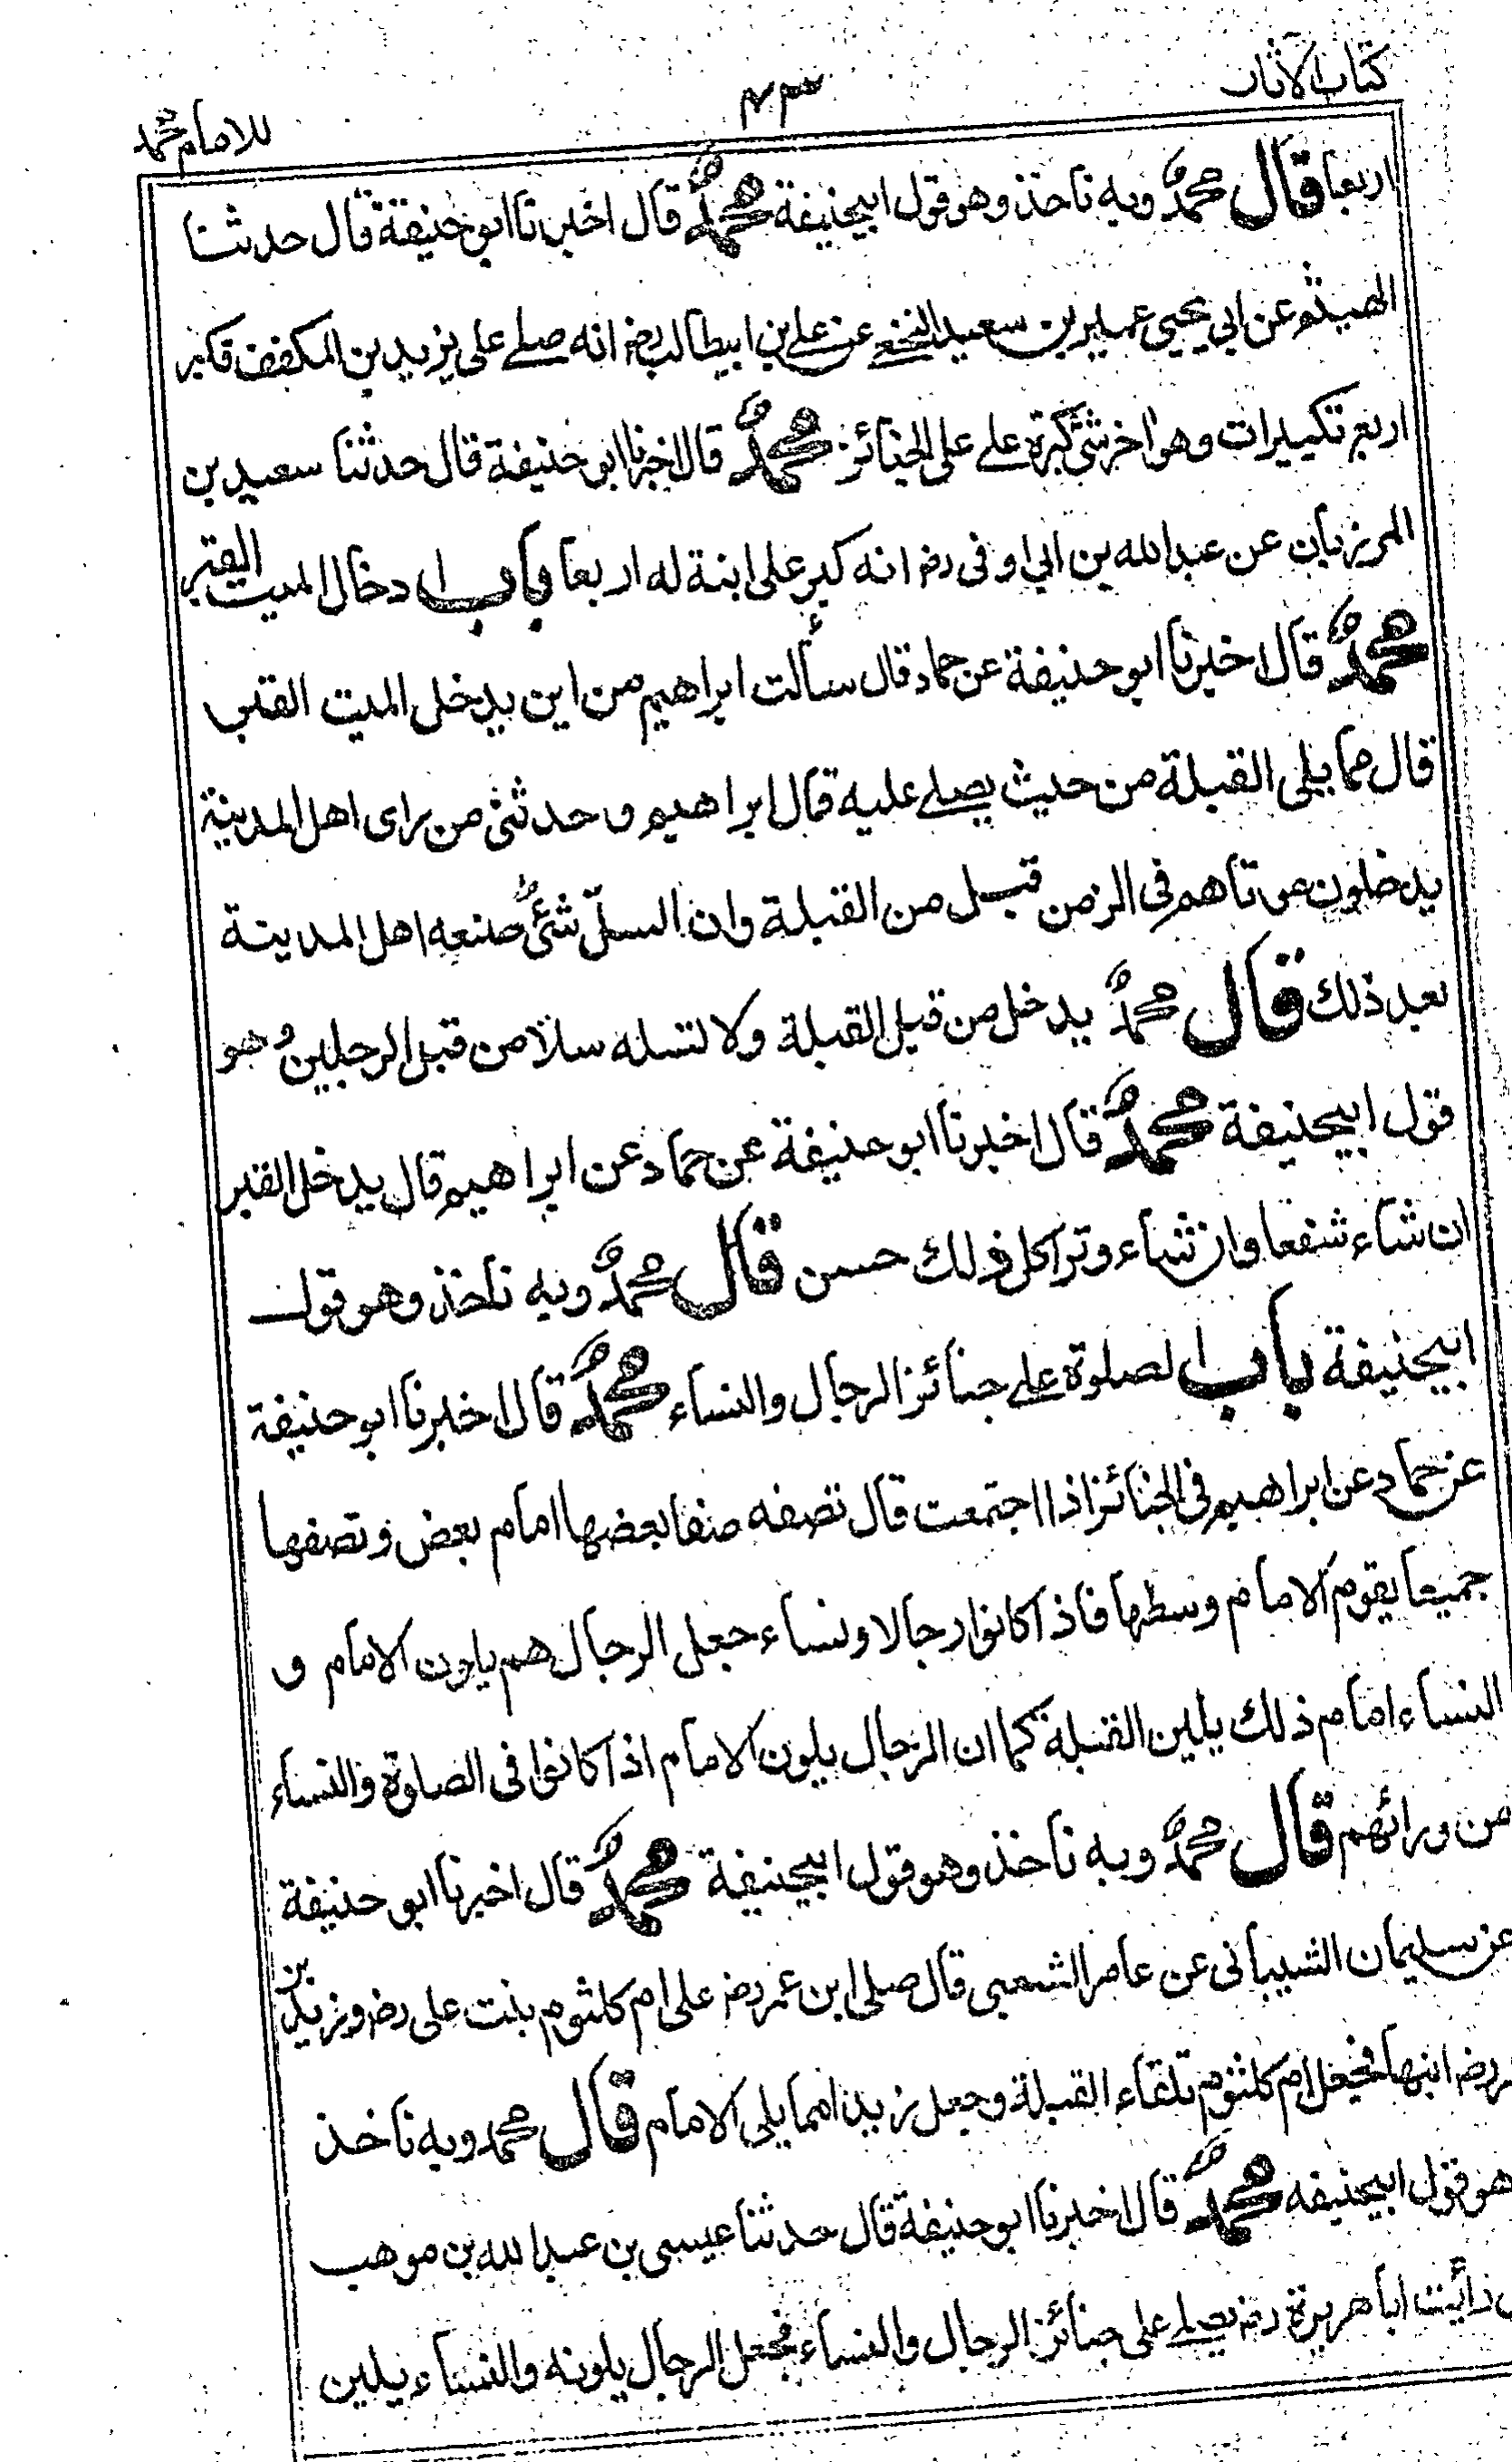 كتاب الآثار
٤٣
للامام محمد
اربعا قال محمد وبه ناخذ وهو قول ابيحنيفة محمد قال اخبرنا ابو حنيفة قال حدثنا
الهيثم عن ابي يحيى عمير بن سعيد النخعي عن علي بن ابيطالب رض انه صلے على يزيد بن المكفف فكبر
اربع تكبيرات وهو اخر شئ كبره علے على الجنائز محمد قال اخبرنا ابو حنيفة قال حدثنا سعيد بن
المرزبان عن عبد الله بن ابي اوفى رض انه كبر على ابنة له اربعا باب ادخال الميت القبر
محمد قال اخبرنا ابو حنيفة عن حماد قال سألت ابراهيم من اين يدخل الميت القبر
قال مما يلى القبلة من حيث يصلے عليه قال ابراهيم وحدثنى من راى اهل المدينة
يدخلون موتاهم فى الزمن قبل من القبلة وان السلّ شئ صنعه اهل المدينة
بعد ذلك قال محمد يدخل من قبل القبلة ولا تسله سلا من قبل الرجلين وهو
قول ابيحنيفة محمد قال اخبرنا ابو حنيفة عن حماد عن ابراهيم قال يدخل القبر
ان شاء شفعا وان شاء وترا كل ذلك حسن قال محمد وبه ناخذ وهو قول
ابيحنيفة باب الصلوة علے جنائز الرجال والنساء محمد قال اخبرنا ابو حنيفة
عن حماد عن ابراهيم فى الجنائز اذا اجتمعت قال تصفه صفا بعضها امام بعض وتصفها
جميعا يقوم الامام وسطها فاذا كانوا رجالا ونساء جعل الرجال هم يلون الامام و
النساء امام ذلك يلين القبلة كما ان الرجال يلون الامام اذا كانوا فى الصلوة والنساء
من ورائهم قال محمد وبه ناخذ وهو قول ابيحنيفة محمد قال اخبرنا ابو حنيفة
عن سليمان الشيبانى عن عامر الشعبى قال صلى ابن عمر رض على ام كلثوم بنت على رض وزيد بن
رض ابنها فجعل ام كلثوم تلقاء القبلة وجعل زيدا مما يلى الامام قال محمد وبه ناخذ
هو قول ابيحنيفة محمد قال اخبرنا ابو حنيفة قال حدثنا عيسى بن عبد الله بن موهب
رأيت ابا هريرة رض يصلے على جنائز الرجال والنساء فجعل الرجال يلونه والنساء يلين